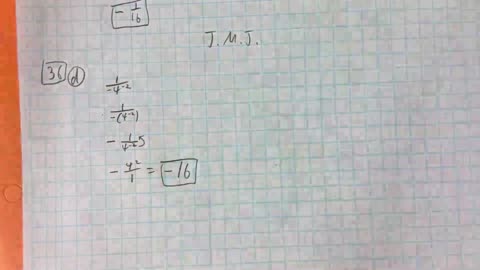 - 1/16
J.M.J.
36 d
1/-4^-2
1/-(4^-2)
- 1/4^-2 5
- 4^2/1 = -16